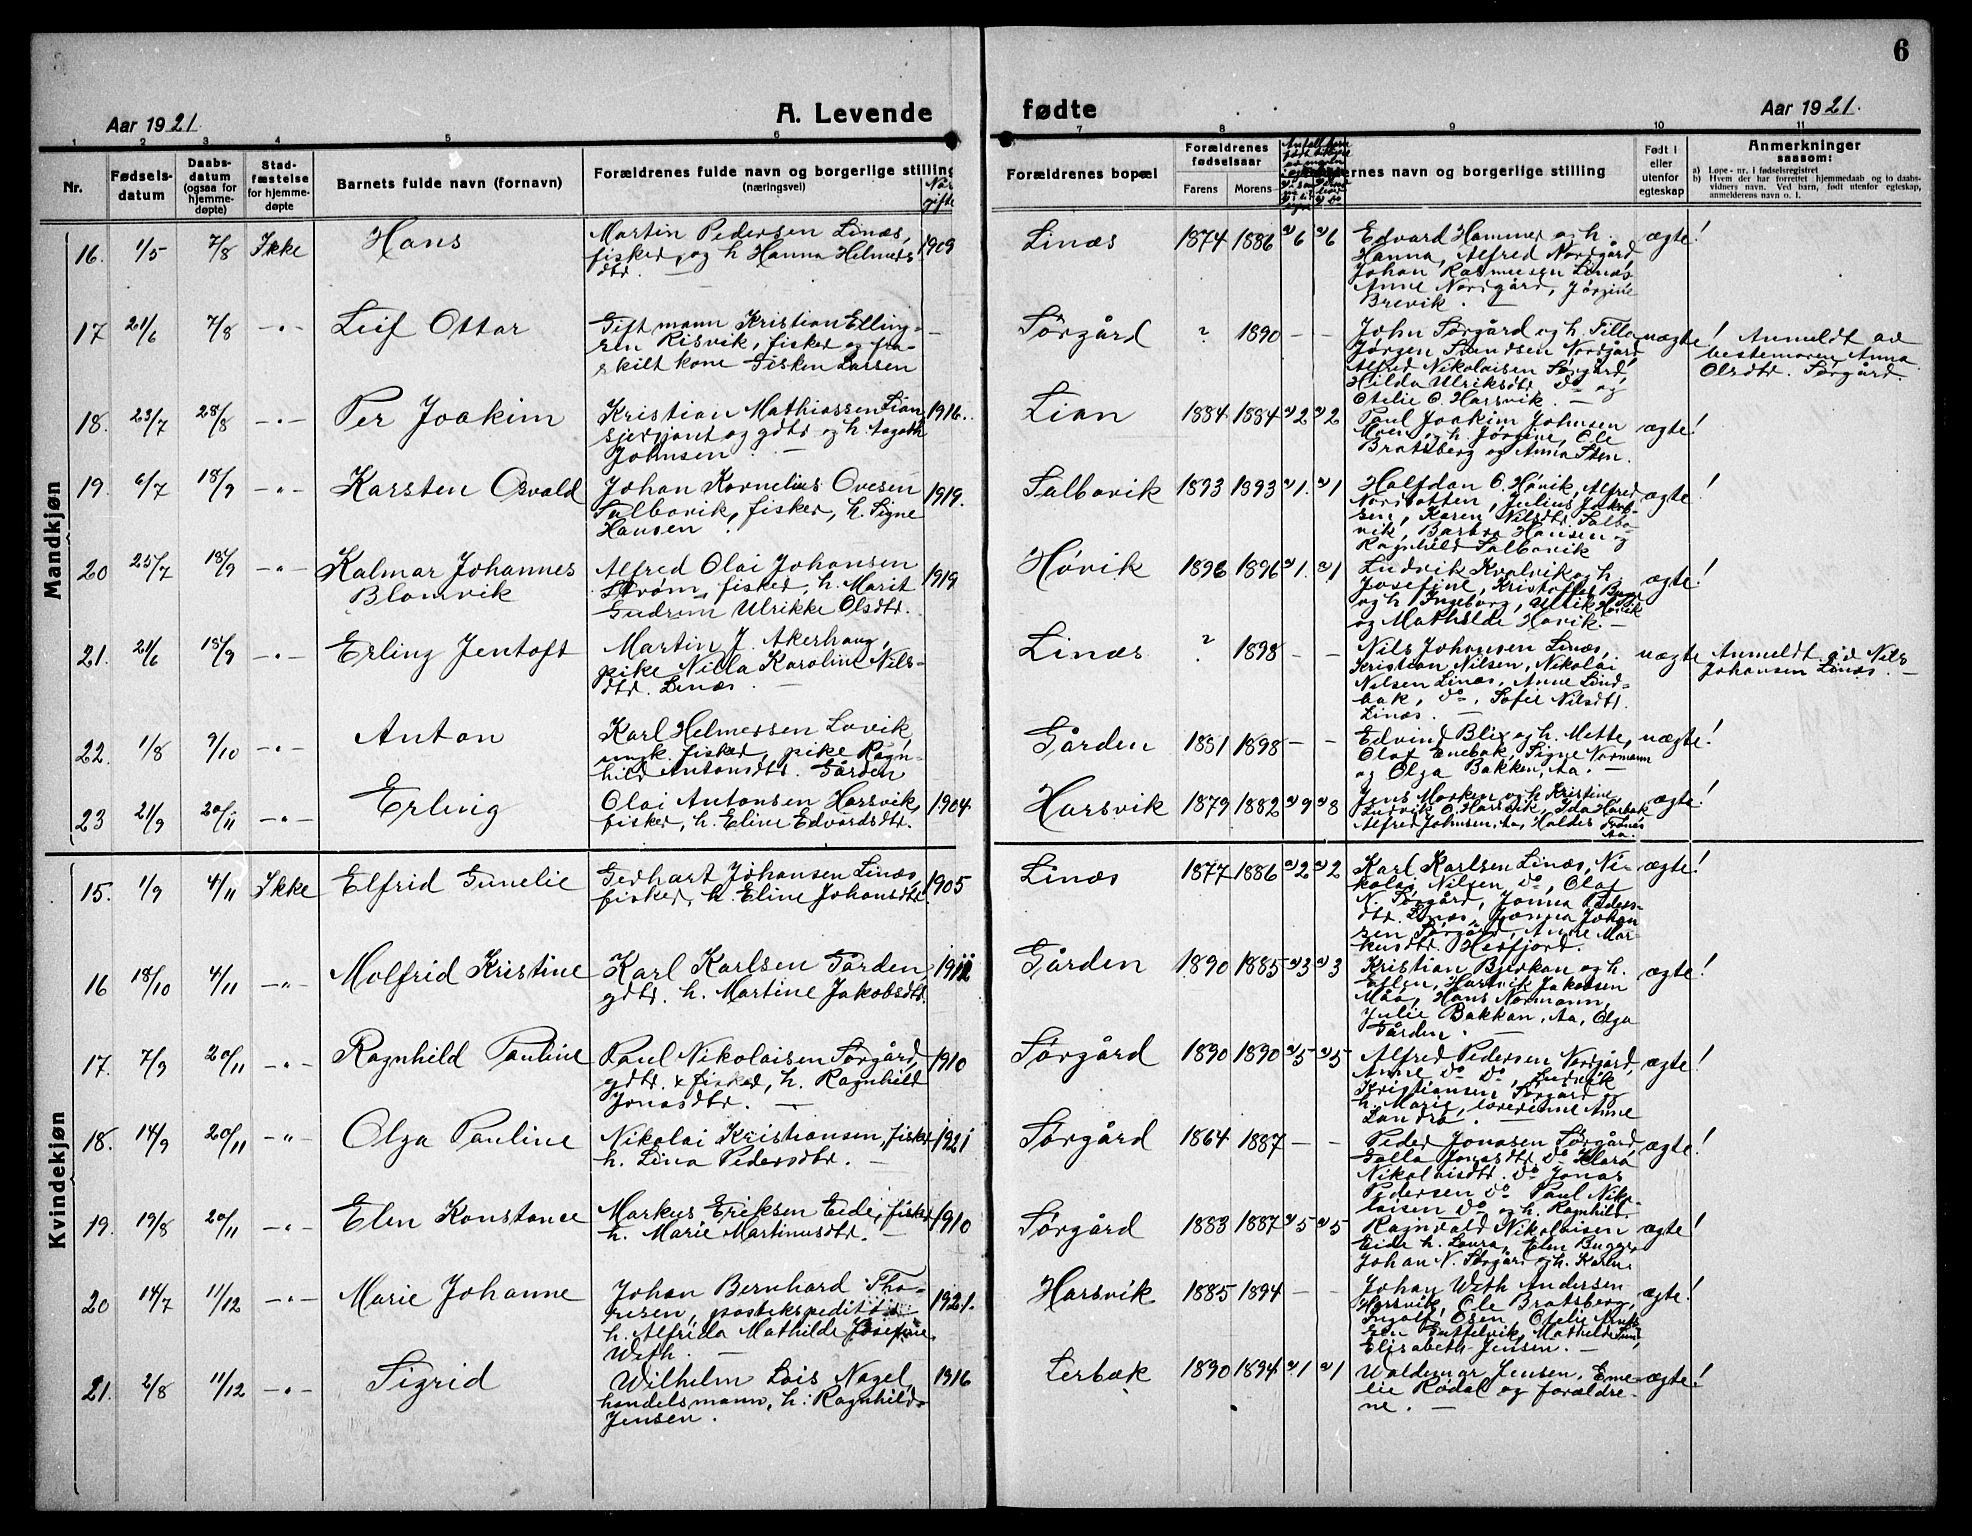 6
Aar 1921.
A. Levende
fødte
Aar 1921.
1 2 3 4 5 6 7 8 9 10 11
Nr.
Fødsels-
datum
Daabs-
datum
(ogsaa for
hjemme-
døpte)
Stad-
fæstelse
for hjemme-
døpte
Barnets fulde navn (fornavn)
Forældrenes fulde navn og borgerlige stilling
(næringsvei)
Når
gifte
Forældrenes bopæl
Forældrenes
fødselsaar
Farens Morens
navn og borgerlige stilling
Født i
eller
utenfor
egteskap
Anmerkninger
saasom:
a) Løpe-nr. i fødselsregistret
b) Hvem der har forrettet hjemmedaab og to daabs-
vidners navn. Ved barn, født utenfor egteskap,
anmelderens navn o. l.
Mandkjøn
16. 1/5 7/8 Ikke Hans
Martin Pedersen Linæs,
fisker, og h Hanna Helmers
dtr.
1909
Linæs 1874 1886 a)6 a)6
Edvard Hammer og h.
Hanna, Alfred Nordgård,
Johan Rasmussen Linæs
Anne Nordgård, Jørgine
Brevik.
ægte!
17 21/6 7/8 -"- Leif Ottar
Gift mann Kristian Elling-
sen Risvik, fisker og fra-
skilt kone Gisken Larsen
—
Sørgård ? 1890 — —
John Sørgård og h. Tilla
Jørgen Svendsen Nordgård
Alfred Nikolaisen Sørgård,
Hilda Ulriksdtr. do og
Otelie O. Harsvik. —
uægte!
Anmeldt av
bestemoren Anna
Olsdtr. Sørgård.
18. 23/7 28/8 -"- Per Joakim
Kristian Mathiassen Lian
sjersjant og gdbr og h. Aagoth
Johnsen. —
1916.
Lian 1884 1884 a)2 a)2
Paul Joakim Johnsen
Moen og h Jørgine, Ole
Bratsberg og Anna Sten.
ægte!
19. 6/7 18/9 -"- Karsten Osvald
Johan Kornelius Ovesen
Salbovik, fisker, h. Signe
Hansen.
1919.
Salbovik 1893 1893 a)1. a)1
Halfdan O. Høvik, Alfred
Nordsotten, Julius Jakob-
sen, Karen Nilsdtr. Salbo-
vik, Barbro Hansen og
Ragnhild Salbovik
ægte!
20 25/7 18/9 -"- Kalmar Johannes
Blomvik
Alfred Olai Johansen
Strøm, fisker, h. Marit
Gudrun Ulrikke Olsdtr.
1919
Høvik 1896 1896 a)1. a)1
Ludvik Kvalvik og h
Josefine, Kristoffer Bugge
og h Ingeborg, Ulrik Høvik
og Mathilde Høvik. —
ægte!
21. 21/6 18/9 -"- Erling Jentoft
Martin J. Akerhaug,
pike Nilla Karoline Nils-
dtr. Linæs. —
Linæs ? 1898 — —
Nils Johansen Linæs,
Kristian Nilsen, Nikolai
Nilsen Linæs, Anne Lind-
bak, do, Sofie Nilsdtr.
Linæs. —
uægte
Anmeldt av Nils
Johansen Linæs. —
22. 1/8 9/10 -"- Anton
Karl Helmersen Lovik
ungk. fisker, pike Ragn-
hild Antonsdtr. Gården
Gården 1891 1898 — —
Edvind Blix og h. Mette,
Olaf Enebak, Signe Normann
og Olga Bakken, Aa. —
uægte!
23 21/9 20/11 -"- Erling
Olai Antonsen Harsvik,
fisker, h. Eline Edvardsdtr.
1904.
Harsvik 1879 1882 a)9 a)8
Jens Morken og h Kristine
Ludvik O. Harsvik, Ida Harbak
Alfred Johnsen, Aa, Halder
Aa.
ægte!
Kvindekjøn
15. 1/9 4/11 Ikke Elfrid Gunelie
Gerhart Johansen Linæs,
fisker, h. Eline Johansdtr.
1905
Linæs 1877 1886 a)2 a)2
Karl Karlsen Linæs, Ni-
kolai Nilsen do, Olaf
N. Sørgård, Jonna Peders-
dtr. Linæs, Johan-
sen Sørgård, Anne Mar-
kusdtr. Hesfjord.
ægte!
16 18/10 4/11 -"- Molfrid Kristine
Karl Karlsen Gården
gdbr. h. Martine Jakobsdtr.
Gården 1890 1885 a)3 a)3
Kristian Bjerkan og h.
Ellen, Hartvik Jakobsen
Måø, Hans Normann,
Julie Bakkan, Aa, Olga
Gården. —
ægte!
17. 7/9 20/11 -"- Ragnhild Pauline
Paul Nikolaisen Sørgård,
gdbr. x fisker, h. Ragnhild
Jonasdtr. —
1910
Sørgård 1890 1890 a)5 a)5
Alfred Pedersen Nordgård,
Anne do do, Ludvik
Kristiansen Sørgård og
h. Marie, lærerinne Anne
Landrø. —
ægte!
18. 14/9 20/11 -"- Olga Pauline
Nikolai Kristiansen, fisker
h. Lina Pedersdtr. —
1921
Sørgård 1864 1887 — —
Peder Jonasen Sørgård,
Galla Jonasdtr do Klara
Nikolaisdtr. do Jonas
Pedersen do Paul Niko-
laisen do og h. Ragnhild.
ægte!
19. 19/8 20/11 -"- Elen Konstance
Markus Eriksen Eide, fisker
h. Marie Martinusdtr. —
1910
Sørgård 1883 1887 a)5 a)5
Ragnvald Nikolaisen
Eide h. Laura, Elen Bugge,
Johan N. Sørgård og h. Karen.
ægte!
20 14/7 11/12 -"- Marie Johanne
Johan Bernhard Tho-
nesen, postekspeditør
h. Alfrida Mathilde Josefine
Weth. —
1921.
Harsvik 1885 1894 — —
Johan Weth Andersen
Harsvik, Ole Bratsberg,
Ingolf Oien, Otelie
sen Guttelvik, Mathilde
Elisabeth Jensen. —
ægte!
21. 2/8 11/12 -"- Sigrid
Wilhelm Lois Nagel,
handelsmann, h: Ragnhild
Jensen.
1916
Lerbæk 1890 1894 a)1 a)1
Waldemar Jensen, Eme-
lie Rødal og forældre-
ne. —
ægte!